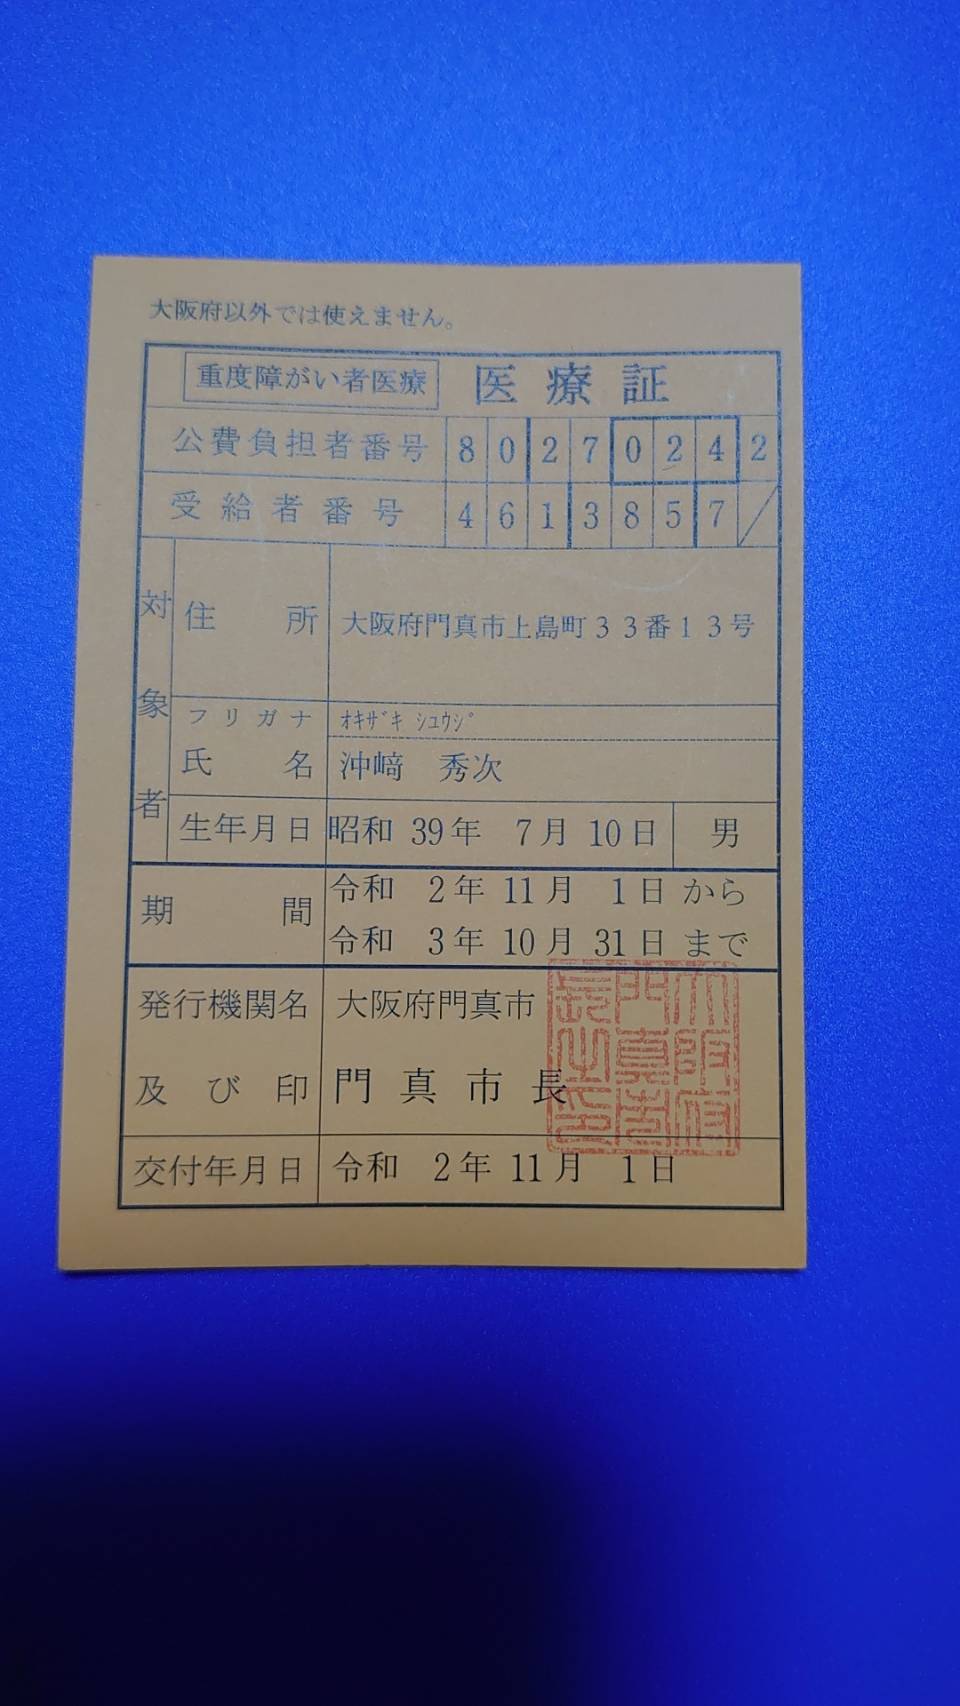 大阪府以外では使えません。
重度障がい者医療 医療証
公費負担者番号 8 0 2 7 0 2 4 2
受給者番号 4 6 1 3 8 5 7 ／
対象者
住所 大阪府門真市上島町３３番１３号
フリガナ ｵｷｻﾞｷ ｼﾕｳｼﾞ
氏名 沖﨑 秀次
生年月日 昭和 39年 7月 10日 男
期間 令和 2年 11月 1日 から
令和 3年 10月 31日 まで
発行機関名 大阪府門真市
及び印 門真市長
大阪府門真市長之印
交付年月日 令和 2年 11月 1日